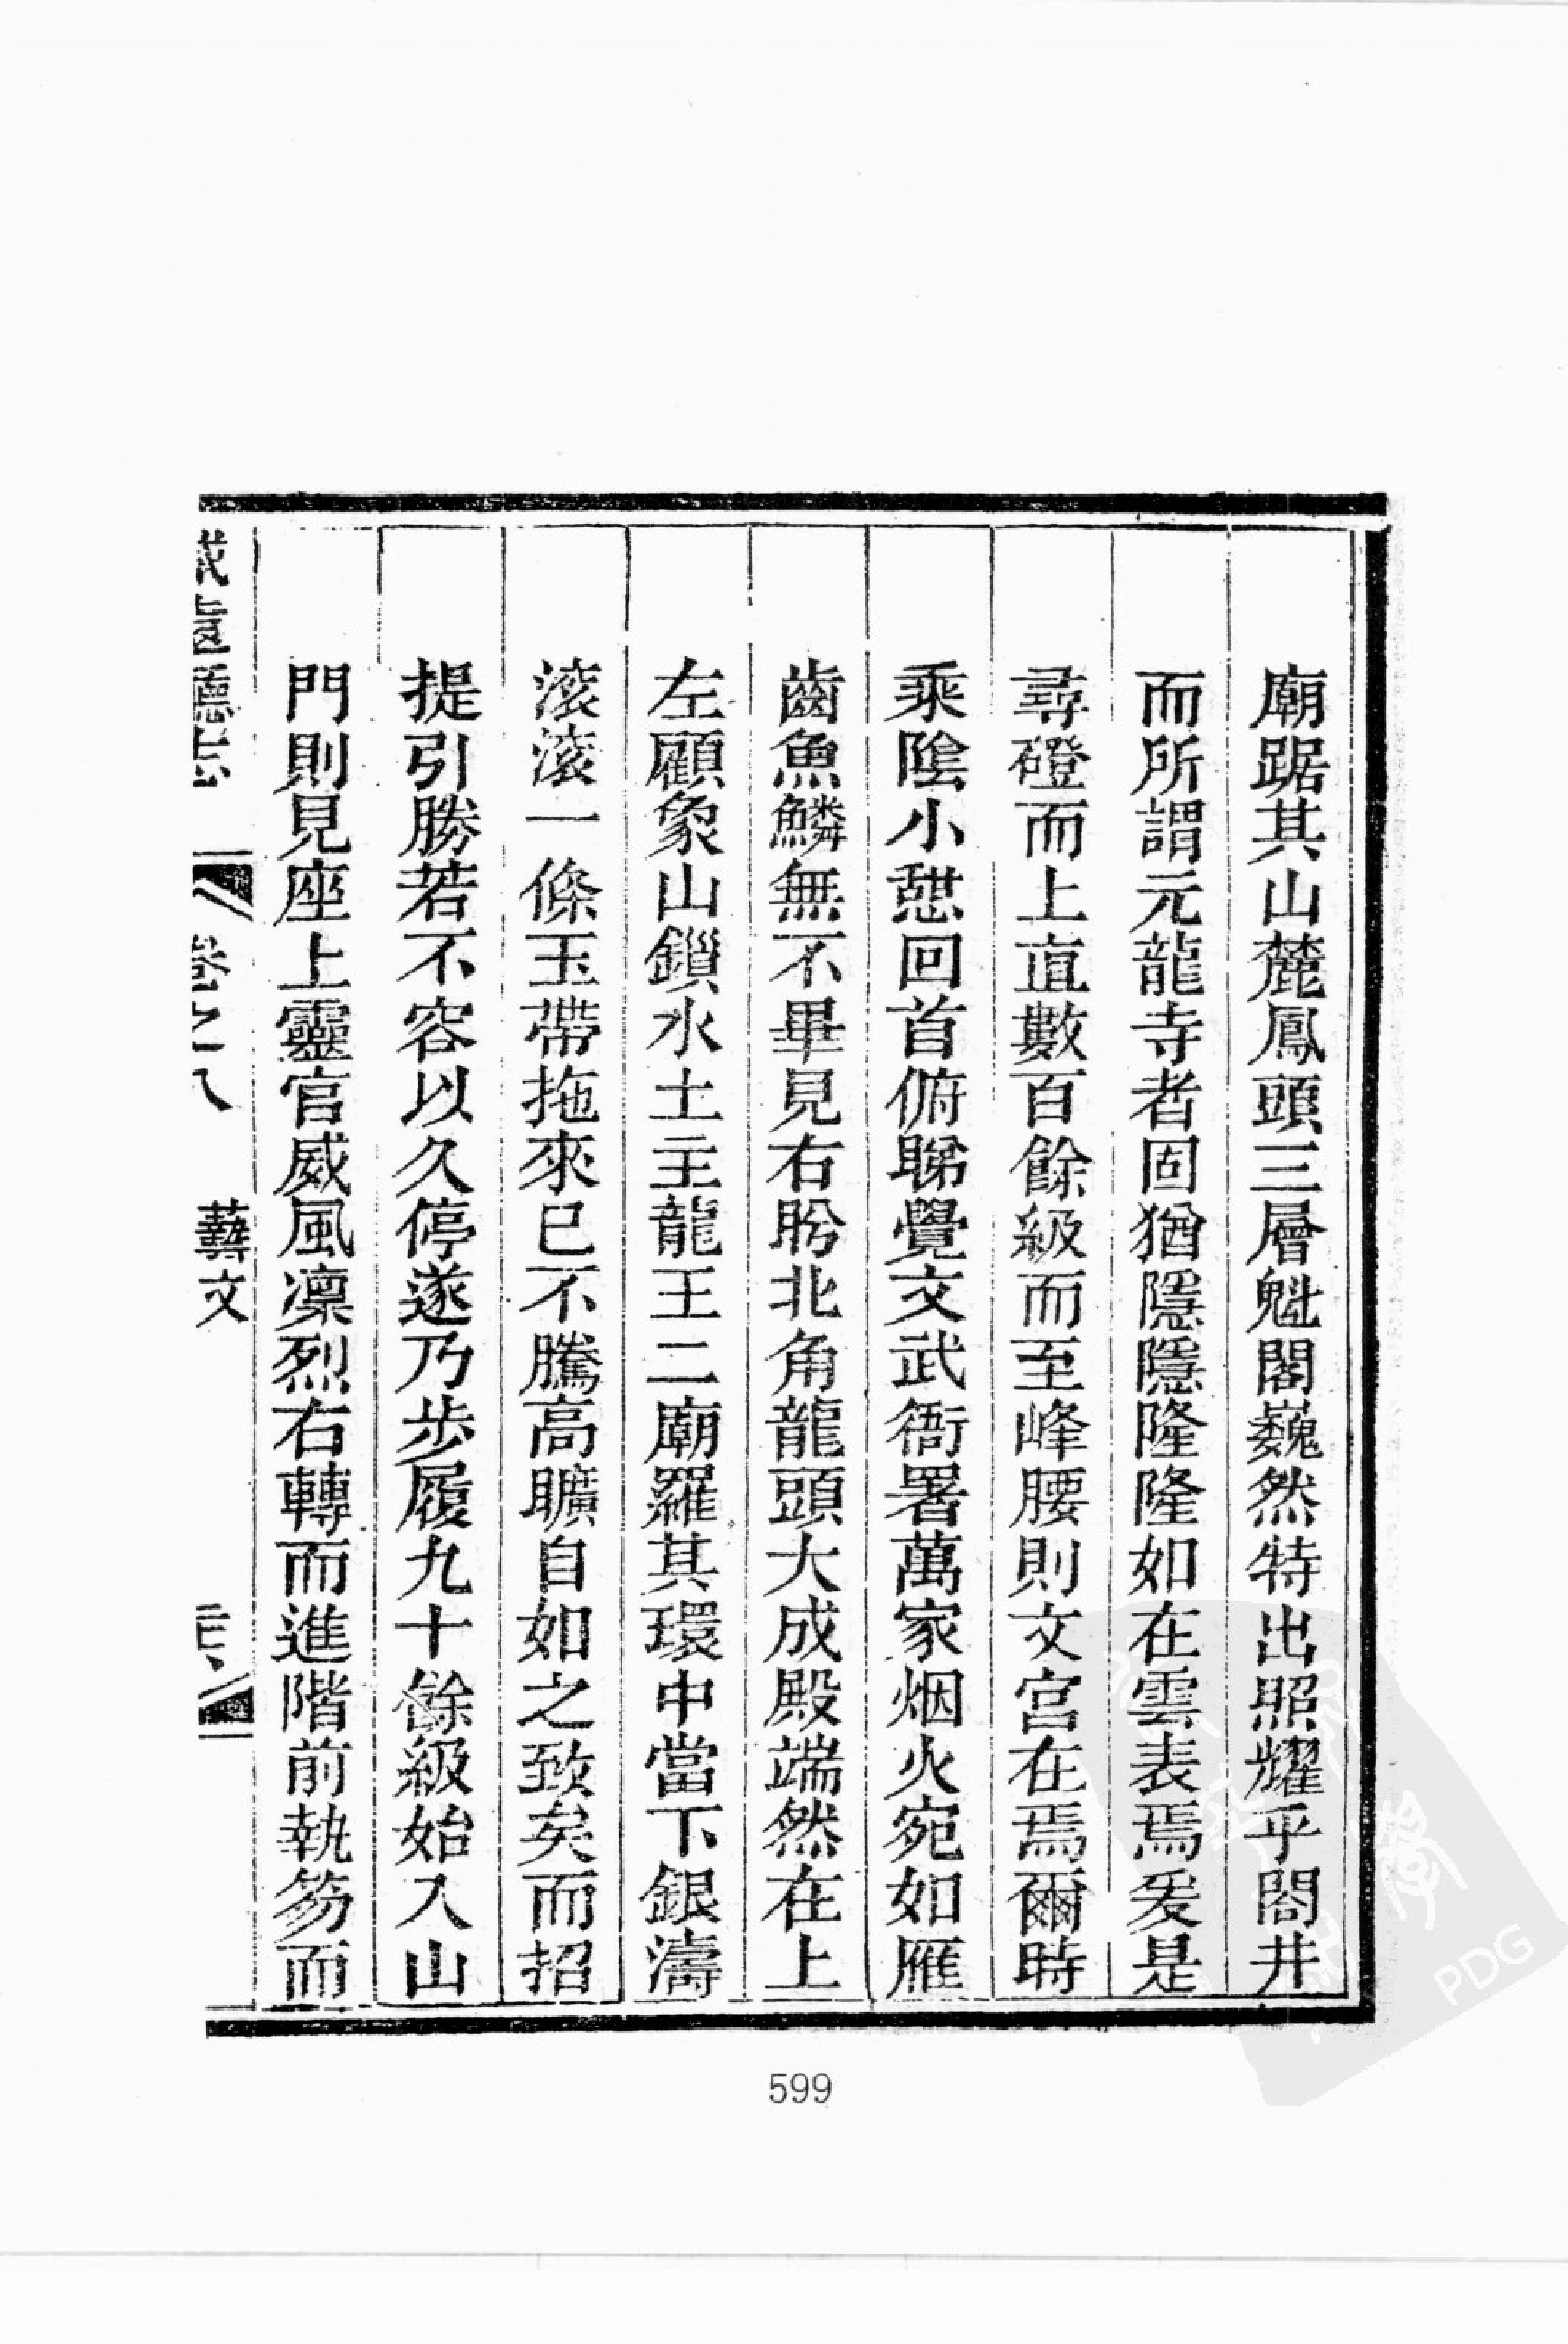 廟踞其山麓鳳頭三層魁閣巍然特出照耀乎閤井
而所謂元龍寺者固猶隱隱隆隆如在雲表焉爰是
尋磴而上直數百餘級而至峰腰則文宮在焉爾時
乘陰小憇回首俯睇覺文武衙署萬家烟火宛如雁
齒魚鱗無不畢見右盻北角龍頭大成殿端然在上
左顧象山鎖水土主龍王二廟羅其環中當下銀濤
滚滚一條玉帶拖來已不騰高曠自如之致矣而招
提引勝若不容以久停遂乃步履九十餘級始入山
門則見座上靈官威風凛烈右轉而進階前執笏而
廳志 卷之八 藝文
599
PDG